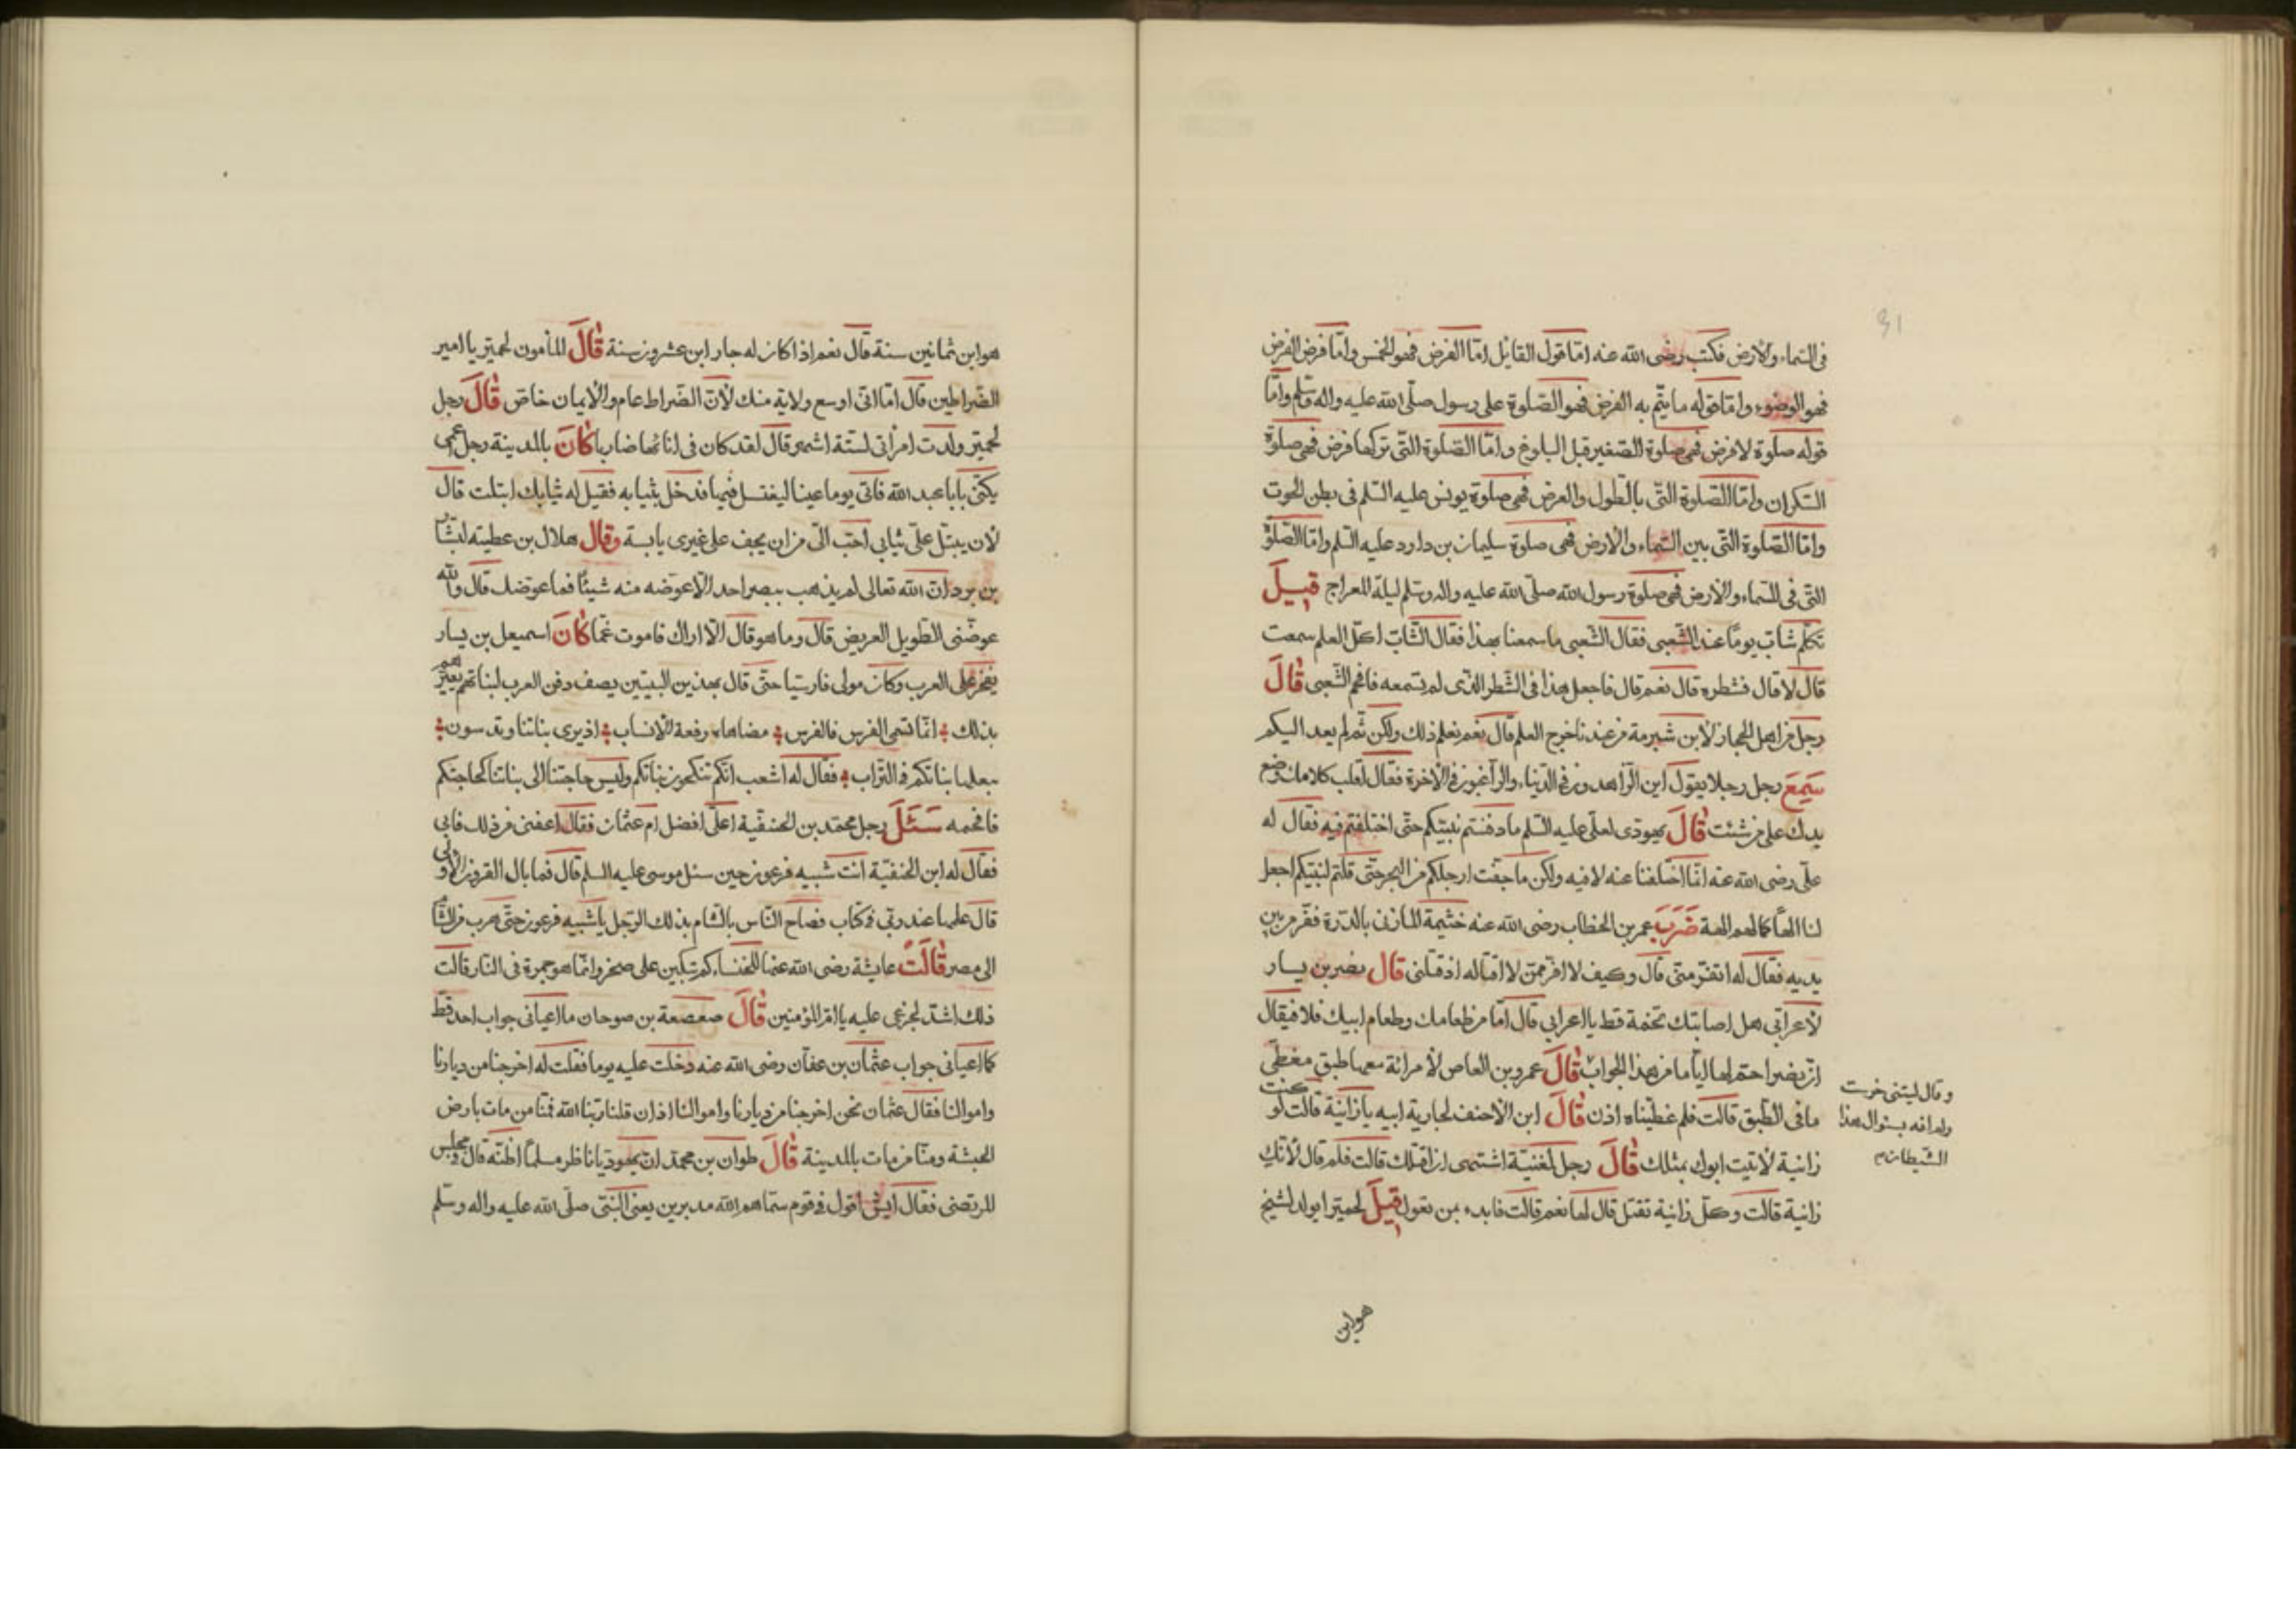 في السماء والارض فكتب رضى الله عنه امّا قول القايل امّا الفرض فهو الخمس وامّا فرض الفرض
فهو الوضوء وامّا قوله ما يتّم به الفرض فهو الصّلوة على رسول صلّى الله عليه واله وسّلم وامّا
قوله صلوة لا فرض فهي صلوة الصّغير قبل البلوغ وامّا الصّلوة التّي تركها فرض فهي صلوة
السّكران وامّا الصّلوة التّي بالطول والعرض فهي صلوة يونس عليه السّلم في بطن الحوت
وامّا الصّلوة التّي بين السّماء والارض فهي صلوة سليمان بن داود عليه السّلم وامّا الصّلوة
التّي في السّماء والارض فهي صلوة رسول الله صلّى الله عليه واله وسلّم ليلة المعراج قيل
تكلّم شابّ يومًا عند الشّعبي فقال الشّعبي ما سمعنا بهذا فقال الشّابّ اكلّ العلم سمعت
قال لا قال فشطره قال نعم قال فاجعل هذا في الشّطر الذّى لم تسمعه فافحم الشّعبى قال
رجل من اهل الحجاز لابن شبرمة من عندنا خرج العلم قال نعم نعلم ذلك ولكن ثم لم يعد اليكم
سمع رجل رجلا يقول اين الزّاهدون في الدّنياء والرّاغبون في الاخرة فقال اقلب كلامك وضع
يدك على من شئت قال يهودى لعلى عليه السّلم ما دفنتم نبيّكم حتّى اختلفتم فيه فقال له
علّى رضى الله عنه انّا اختلفنا عنه لا فيه ولكن ما جفّت ارجلكم من البحر حتّى قلتم لنبيّكم اجعل
لنا الهًا كما لهم الهة ضرب عمر بن الخطاب رضى الله عنه خثيمة المازنى بالدّرة ففّر من بين
يديه فقال له اتفّر منّى قال وكيف لا افّر ممّن لا اقاتله اذ قتلنى قال نصر بن يسار
لأعرابّي هل اصابتك تخمة قط يا اعرابي قال امّا من طعامك وطعام ابيك فلا فيقال
انّ نصرا حّم لها ايّاما من هذا الجواب قال عمرو بن العاص لأمرائة معها طبق مغطّى
ما في الطّبق قالت فلم غطّيناه اذن قال ابن الأحنف لجارية ابيه يا زانية قالت لو كنت
زانية لأتيت ابوك بمثلك قال رجل لمغنيّة اشتهى ان اقبلك قالت فلم قال لأنّك
زانية قالت وكلّ زانية تقبّل قال لها نعم قالت فابدء بمن تعول قيل لحميّر ايولد لشيخ
وقال ليتنى خرست
ولم افه بسؤال هذا
الشّيطان
هو ابن
هو ابن ثمانين سنة قال نعم اذا كان له جار ابن عشرون سنة قال المأمون لحميّر يا امير
الضّراطين قال امّا انّي اوسع ولاية منك لأنّ الضّراط عام والأيمان خاصّ قال رجل
لحميّر ولدت امرأتى لستّة اشهر قال لقد كان في اناءها ضاربا كان بالمدينة رجل اعمى
يكنّى بابا عبد الله فاتى يوما عينا ليغتسل فيها فدخل بثيابه فقيل له ثيابك ابتلت قال
لأن يبتل علّي ثيابي احبّ الّي من ان يجف على غيرى يابسة وقال هلال بن عطية لبشّار
بن برد انّ الله تعالى لم يذهب ببصر احد الّا عوضه منه شيئًا فما عوّضك قال والله
عوضّنى الطّويل العريض قال وما هو قال الّا اراك فاموت غمّا كان اسمعيل بن يسار
يفخر على العرب وكان مولى فارسيّا حتّى قال بهذين البيتين يصف دفن العرب لبناتهم يعيّرهم
بذلك انّما سّمى الفرس فالفرس مضاهاه رفعة الأنساب اذ يرى بناتنا وتدسون
بعلها بناتكم في التّراب فقال له اشعب انّكم تنكحون بناتكم وليس حاجتنا الى بناتنا كحاجتكم
فافحمه سئل رجل محمّد بن الحنفيّة اعلّى افضل ام عثمان فقال اعفنى من ذلك فابي
فقال له ابن الحنفيّة انت شبيه فرعون حين سئل موسى عليه السلم قال فما بال القرون الأولى
قال علمها عند ربّي في كتاب فصاح النّاس بالشّام بذلك الرّجل يا شبيه فرعون حتّى هرب من الشّام
الى مصر قالت عايشة رضى الله عنها للخنساء كم تبكين على صخر وانّما هو جمرة في النّار قالت
ذلك اشدّ لجزعى عليه يا امّ المؤمنين قال صعصعة بن صوحان ما اعيانى جواب احد قطّ
كما اعيانى جواب عثمان بن عفّان رضى الله عنه دخلت عليه يوما فقلت له اخرجنا من ديارنا
واموالنا فقال عثمان نحن اخرجنا من ديارنا واموالنا اذ ان قلنا ربّنا الله فمّنا من مات بارض
الحبشة ومنّا من مات بالمدينة قال طوان بن محمّد انّ يهوديّا ناظر مسلما اظنّه قال في مجلس
المرتضى فقال ايش اقول في قوم سمّاهم الله مدبرين يعنى النّبي صلّى الله عليه واله وسّلم